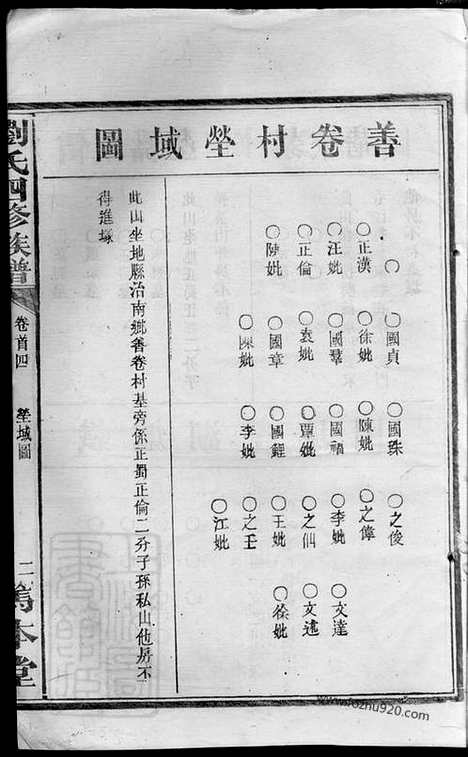 善卷村塋域圖
○
○國貞
○國珠
○之俊
○正漢
○徐妣
○陳妣
○之偉
○汪妣
○國羣
○國禎
○李妣
○文達
○正倫
○袁妣
○覃妣
○之仙
○文述
○陳妣
○國章
○國鍟
○王妣
○徐妣
○陳妣
○李妣
○之壬
○江妣
此山坐地縣治南鄉善卷村基旁係正蜀正倫二分子孫私山他房不
得進塚
劉氏四修族譜
卷首四
塋域圖
二
篤本堂
www.fozhu920.com